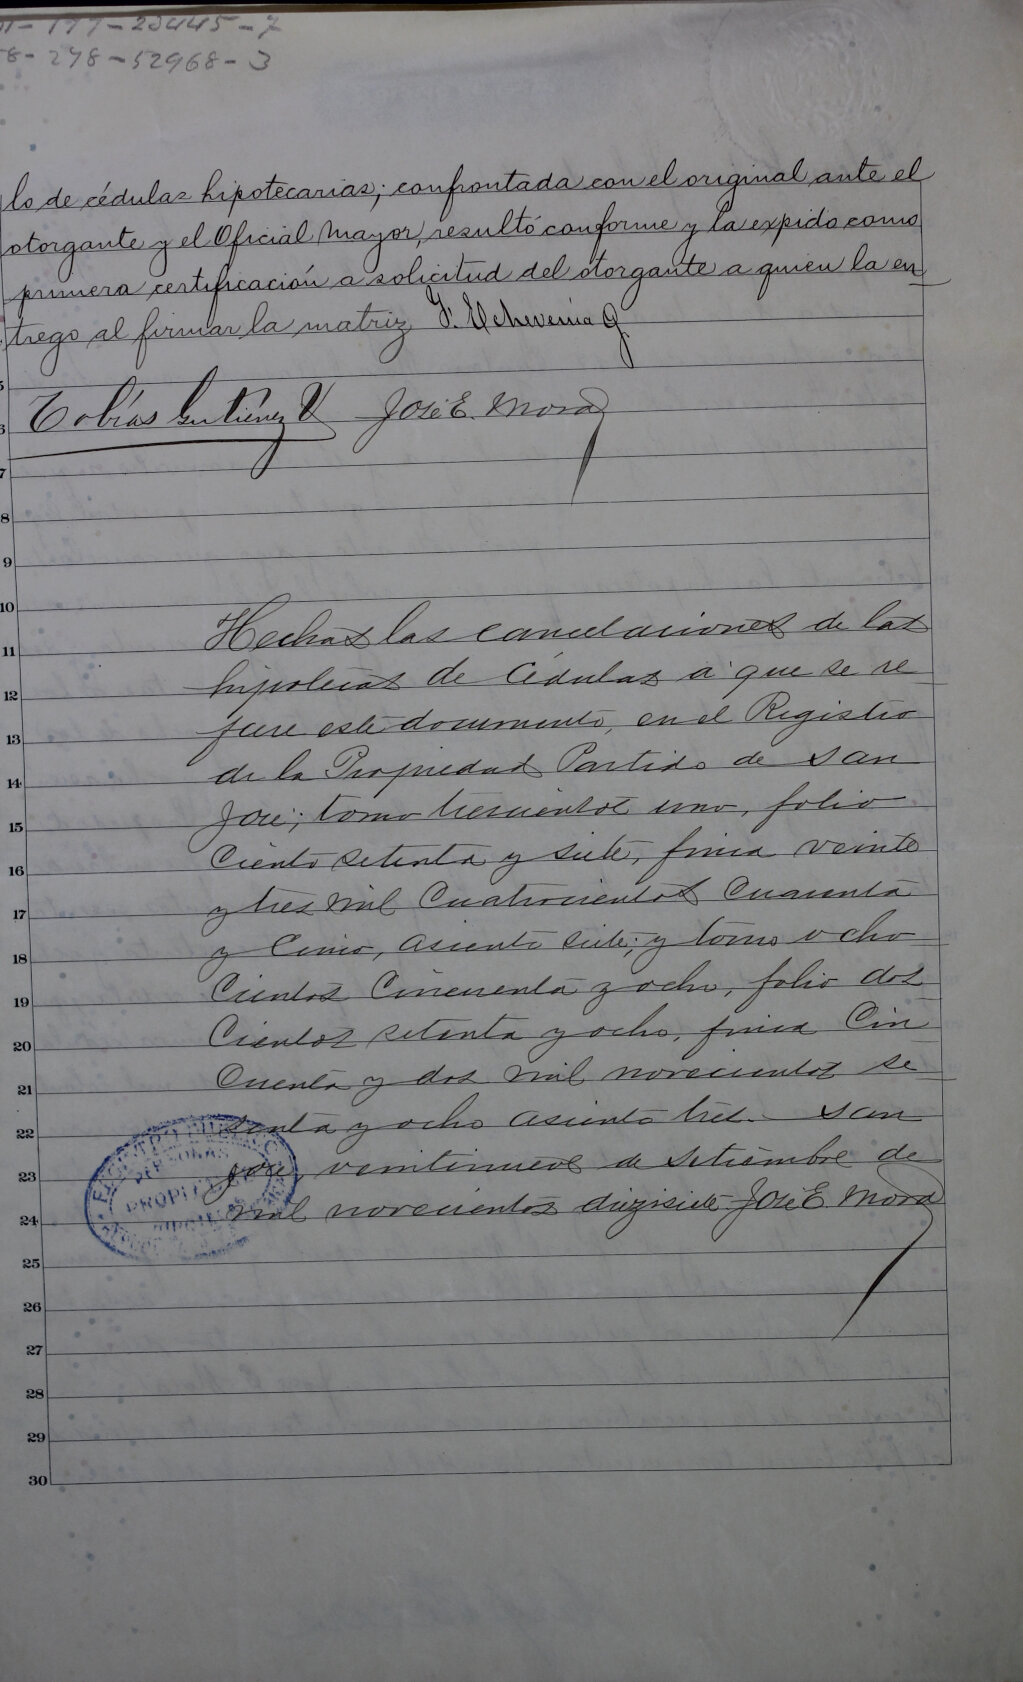 177-23445-7
8-278-52968-3
lo de cédulas hipotecarias; confrontada con el original ante el
otorgante y el Oficial Mayor, resultó conforme y la expido como
primera certificación a solicitud del otorgante a quien la en
trego al firmar la matriz F. Echeverría G.
Tobías Gutiérrez V José E. Mora
Hechas las cancelaciones de las
hipotecas de Cédulas a que se re
fiere este documento, en el Registro
de la Propiedad Partido de San
José; tomo trescientos uno, folio
Ciento setenta y siete, finca veinte
y tres mil Cuatrocientos Cuarenta
y Cinco, asiento siete; y tomo ocho
Cientos Cincuenta y ocho, folio dos
Cientos setenta y ocho, finca Cin
Cuenta y dos mil novecientos se
senta y ocho asiento tres. San
José, veintinueve de setiembre de
mil novecientos diezisiete. José E. Mora
REGISTRO PUBLICO
PERSONAS
PROPIEDAD
5
6
7
8
9
10
11
12
13
14
15
16
17
18
19
20
21
22
23
24
25
26
27
28
29
30